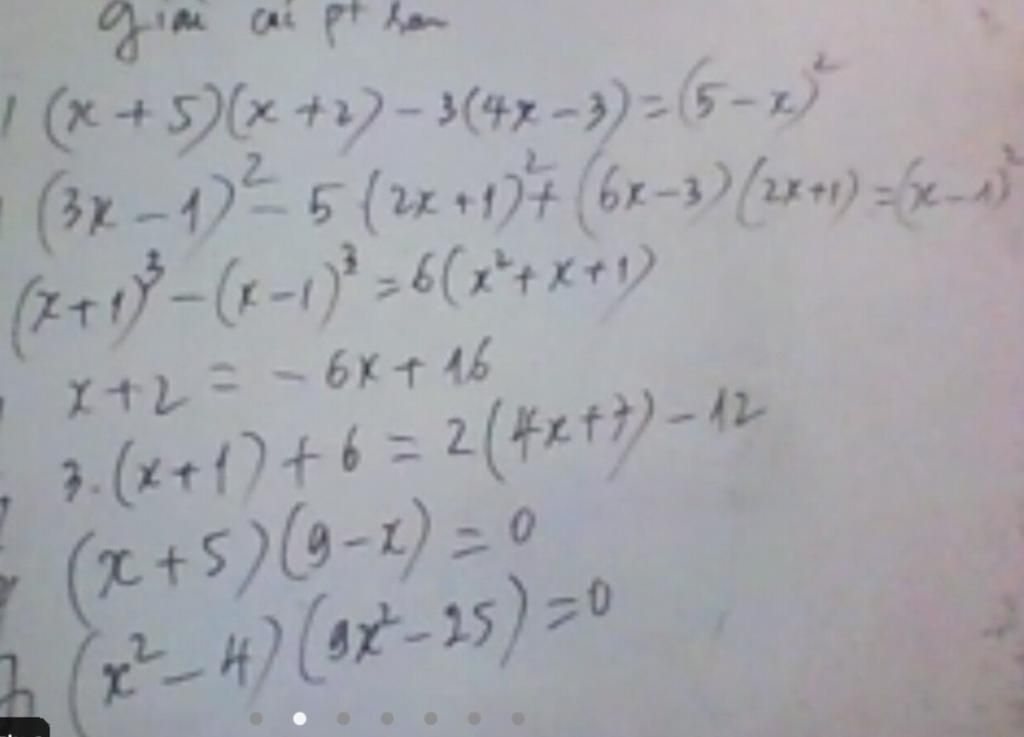 Giải các pt sau
1 (x + 5)(x + 2) - 3(4x - 3) = (5 - x)²
(3x - 1)² - 5(2x + 1)² + (6x - 3)(2x + 1) = (x - 1)²
(x + 1)³ - (x - 1)³ = 6(x² + x + 1)
x + 2 = - 6x + 16
3.(x + 1) + 6 = 2(4x + 7) - 12
(x + 5)(9 - x) = 0
(x² - 4)(9x² - 25) = 0